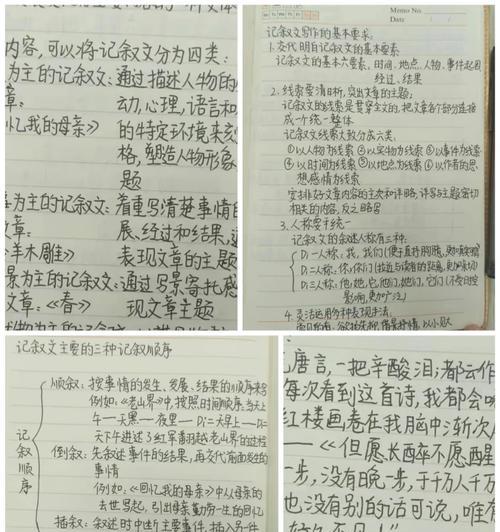 内容,可以将记叙文分为四类:
为主的记叙文:通过描述人物的
章:动,心理,语言和
忆我的母亲》的特定环境来
格,塑造人物形象
题
为主的记叙文:着重写清楚事情的
文章:展、经过和结果,
羊木雕》表现文章的主题
景为主的记叙文:通过写景寄托感
文章:《春》现文章主题
Memo No.
Date
记叙文写作的基本要求。
1.交代明白记叙文的基本要素
记叙文的基本六要素,时间、地点、人物、事件起因
经过、结果
2.线索要清晰,突出文章的主题;
记叙文的线索是贯穿全文的,把文章各个部分连接
成一个统一整体
记叙文线索大致分成六类:
①以人物为线索 ②以实物为线索 ③以事件为线索
④以时间为线索 ⑤以地点为线索 ⑥以作者的思
想感情为线索
安排好文章内容的主次和详略,详写与主题密切
相关的内容,反之略写
3.人称要于统一
记叙文的叙述人称有三种.
第一人称,我,我们(便于直抒胸臆,
第二人称:你,你们(拉近与读者的距离,更加亲切
第三人称:他,她,它,他们,她们,它们(不受时空
影响,更加广泛)
4.灵活运用多种表现手法.
记叙文主要的三种记叙顺序
记叙顺序
顺叙:按事情的发生、发展、结果的顺序来写
例如:《老山界》中,按照时间顺序,当天上
午—天黑—夜里—第二天早上—第二
天下午进述了红军翻越老山界的过程
倒叙:先叙述事件的结果,再交代前面发生的
事情
例如:《回忆我的母亲》中从母亲的
去世写起,引出亲勤劳一生的回忆
插叙:叙述时中断主要事件,插入另一件
唐言,一把辛酸泪;都云作
每次看到这首诗,我都会
红楼画卷在我脑中渐次
——《但愿长醉不愿醒
一步,没有晚一步,于千万人
也没有别的话可说,唯有